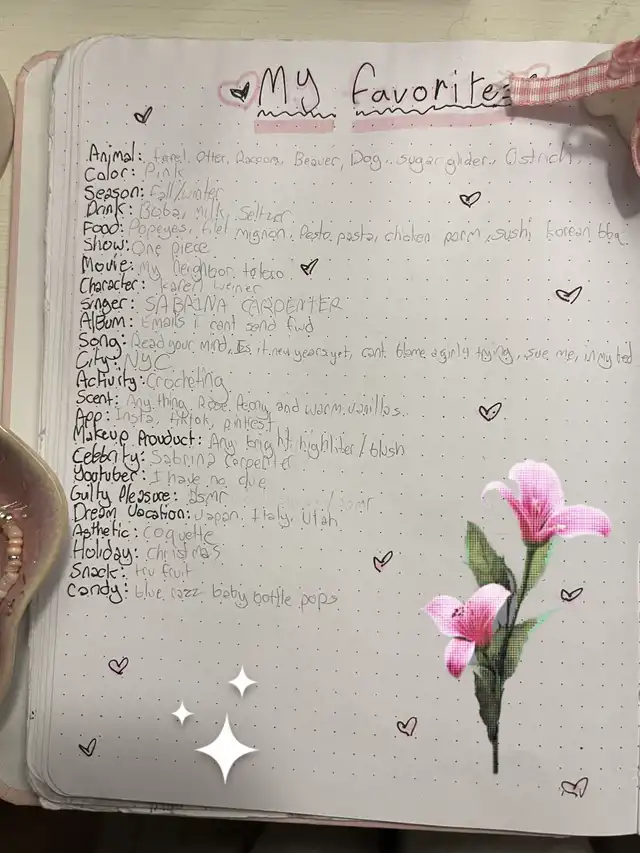 My favorites
Animal: Otter, Racoon, Beaver, Dog, sugar glider, Ostrich
Color: Pink
Season: Fall/winter
Drink: Boba, Milk, Seltzer
Food: Popeyes, filet mignon, Pesto pasta, chicken parm, sushi, korean bbq
Show: One piece
Movie: My neighbor totoro
Character: karen weiner
Singer: SABRINA CARPENTER
Album: Emails i cant send fwd
Song: Read your mind, Is it new years yet, cant blame a girl 4 trying, sue me, in my bed
City: NYC
Activity: Crocheting
Scent: Anything Rose, Peony, and warm vanillas
App: Insta, tiktok, pintrest
Makeup Prouduct: Any bright highliter/blush
Celebrity: Sabrina Carpenter
Youtuber: I have no clue
Guilty Pleasure: Asmr
Dream Vacation: Japan, Italy, Utah
Asthetic: Coquette
Holiday: Christmas
Snack: tru fruit
Candy: blue razz baby bottle pops